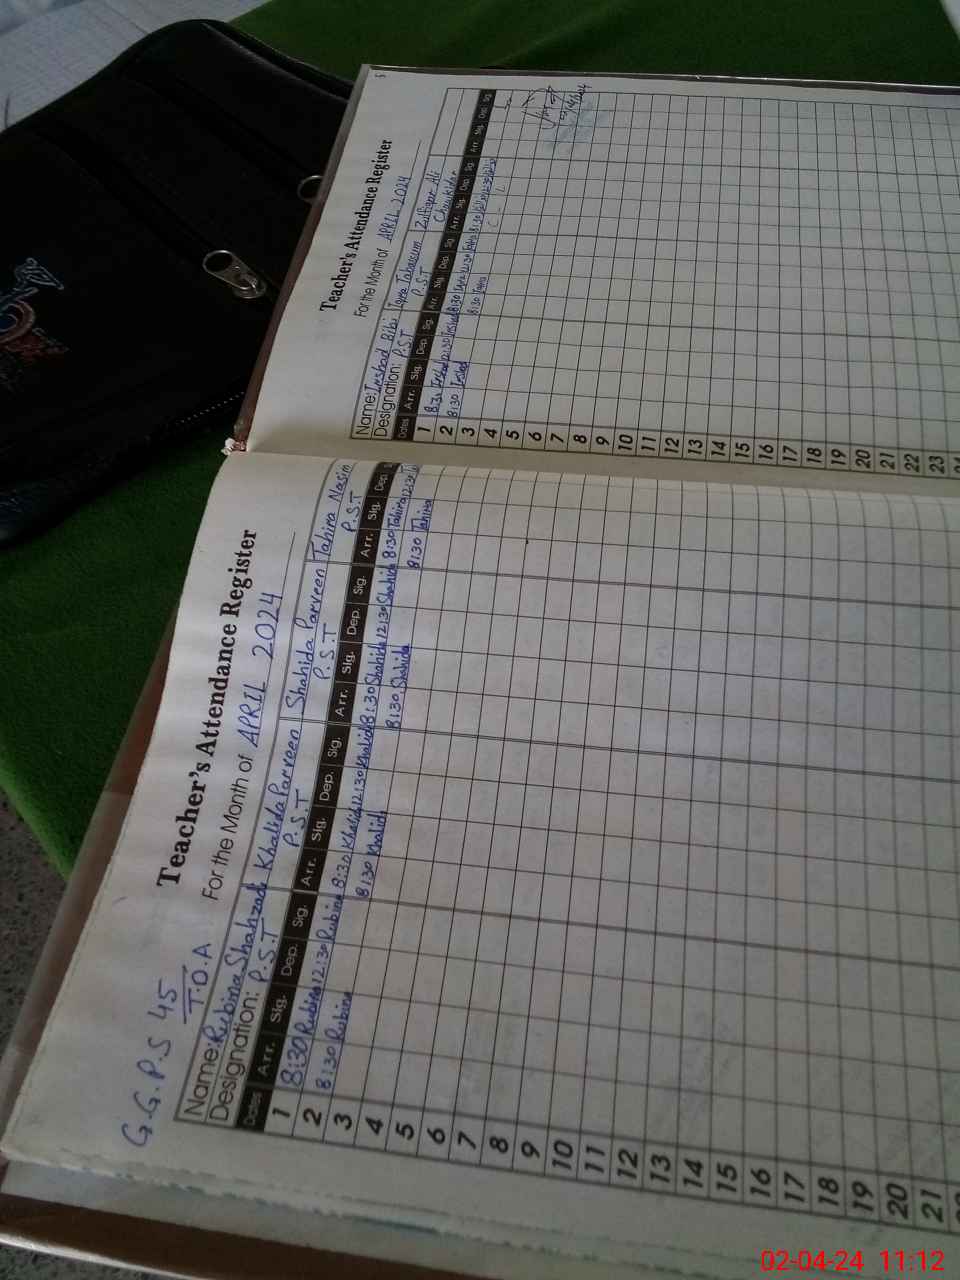 G.G.P.S 45
T.O.A
Teacher's Attendance Register
For the Month of APRIL 2024
Name: Rubina Shahzadi Khalida Parveen Shahida Parveen Tahira Nasim
Designation: P.S.T P.S.T P.S.T P.S.T
Dates Arr. Sig. Dep. Sig. Arr. Sig. Dep. Sig. Arr. Sig. Dep. Sig. Arr. Sig. Dep
1 8:30 Rubina 12:30 Rubina 8:30 Khalida 12:30 Khalida 8:30 Shahida 12:30 Shahida 8:30 Tahira 12:30
2 8:30 Rubina 8:30 Khalida 8:30 Shahida 8:30 Tahira
3
4
5
6
7
8
9
10
11
12
13
14
15
16
17
18
19
20
21
Teacher's Attendance Register
For the Month of APRIL 2024
Name: Irshad Bibi Iqra Tabassum Zulfiqar Ali
Designation: P.S.T P.S.T Chowkidar
Dates Arr. Sig. Dep Sig. Arr. Sig. Dep Sig. Arr. Sig. Dep Sig. Arr. Sig. Dep Sig.
1 8:30 Irshad 12:30 Irshad 8:30 12:30 8:30 12:30
2 8:30 Irshad 8:30
3
4
5
6
7
8
9
10
11
12
13
14
15
16
17
18
19
20
21
22
23
02-04-24 11:12